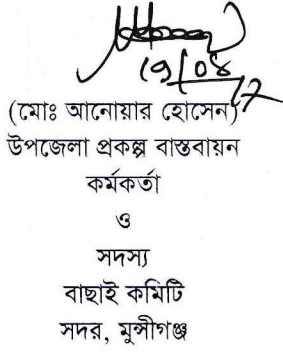 19/04/17
(মোঃ আনোয়ার হোসেন)
উপজেলা প্রকল্প বাস্তবায়ন
কর্মকর্তা
ও
সদস্য
বাছাই কমিটি
সদর, মুন্সীগঞ্জ